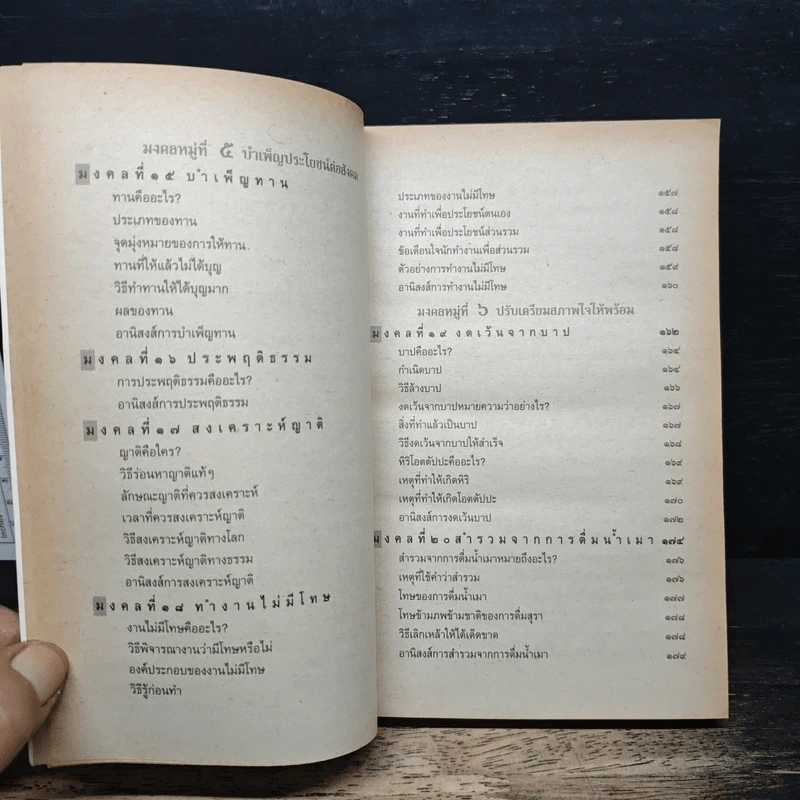 มงคลหมู่ที่ ๕ บำเพ็ญประโยชน์ต่อสังคม
มงคลที่ ๑๕ บำเพ็ญทาน
ทานคืออะไร?
ประเภทของทาน
จุดมุ่งหมายของการให้ทาน
ทานที่ให้แล้วไม่ได้บุญ
วิธีทำทานให้ได้บุญมาก
ผลของทาน
อานิสงส์การบำเพ็ญทาน
มงคลที่ ๑๖ ประพฤติธรรม
การประพฤติธรรมคืออะไร?
อานิสงส์การประพฤติธรรม
มงคลที่ ๑๗ สงเคราะห์ญาติ
ญาติคือใคร?
วิธีร่อนหาญาติแท้ๆ
ลักษณะญาติที่ควรสงเคราะห์
เวลาที่ควรสงเคราะห์ญาติ
วิธีสงเคราะห์ญาติทางโลก
วิธีสงเคราะห์ญาติทางธรรม
อานิสงส์การสงเคราะห์ญาติ
มงคลที่ ๑๘ ทำงานไม่มีโทษ
งานไม่มีโทษคืออะไร?
วิธีพิจารณางานว่ามีโทษหรือไม่
องค์ประกอบของงานไม่มีโทษ
วิธีรู้ก่อนทำ
ประเภทของงานไม่มีโทษ ๑๕๗
งานที่ทำเพื่อประโยชน์ตนเอง ๑๕๘
งานที่ทำเพื่อประโยชน์ส่วนรวม ๑๕๘
ข้อเตือนใจนักทำงานเพื่อส่วนรวม ๑๕๘
ตัวอย่างการทำงานไม่มีโทษ ๑๕๙
อานิสงส์การทำงานไม่มีโทษ ๑๖๐
มงคลหมู่ที่ ๖ ปรับเตรียมสภาพใจให้พร้อม
มงคลที่ ๑๙ งดเว้นจากบาป ๑๖๒
บาปคืออะไร? ๑๖๔
กำเนิดบาป ๑๖๔
วิธีล้างบาป ๑๖๖
งดเว้นจากบาปหมายความว่าอย่างไร? ๑๖๗
สิ่งที่ทำแล้วเป็นบาป ๑๖๗
วิธีงดเว้นจากบาปให้สำเร็จ ๑๖๘
หิริโอตตัปปะคืออะไร? ๑๖๙
เหตุที่ทำให้เกิดหิริ ๑๖๙
เหตุที่ทำให้เกิดโอตตัปปะ ๑๗๐
อานิสงส์การงดเว้นบาป ๑๗๒
มงคลที่ ๒๐ สำรวมจากการดื่มน้ำเมา ๑๗๔
สำรวมจากการดื่มน้ำเมาหมายถึงอะไร? ๑๗๖
เหตุที่ใช้คำว่าสำรวม ๑๗๖
โทษของการดื่มน้ำเมา ๑๗๗
โทษข้ามภพข้ามชาติของการดื่มสุรา ๑๗๘
วิธีเลิกเหล้าให้ได้เด็ดขาด ๑๗๘
อานิสงส์การสำรวมจากการดื่มน้ำเมา ๑๗๙